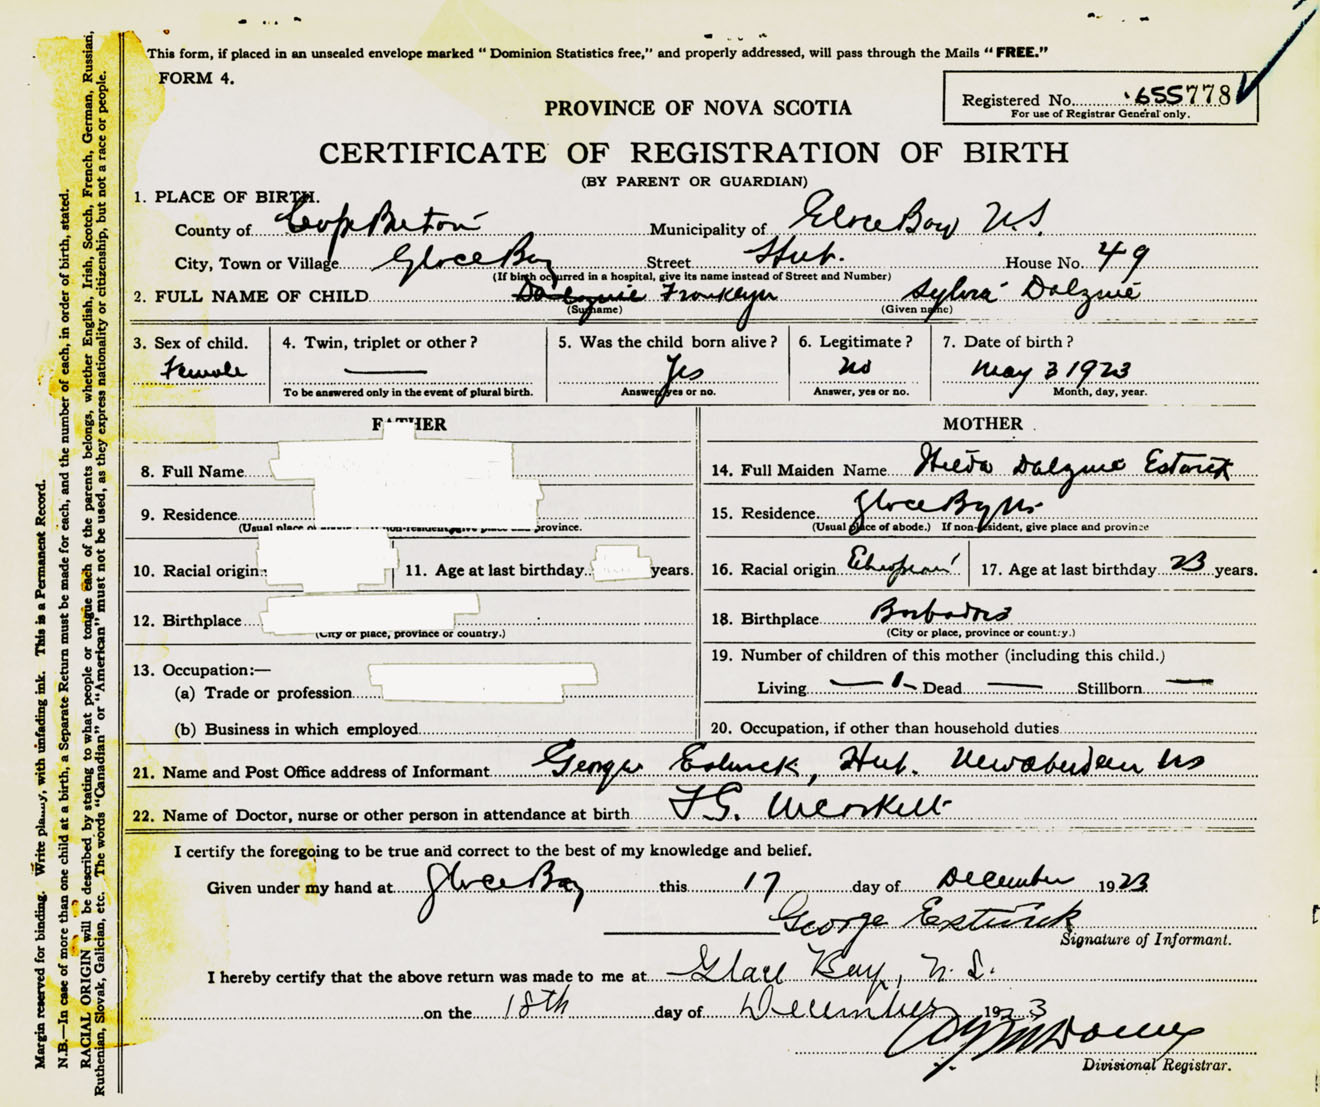 This form, if placed in an unsealed envelope marked "Dominion Statistics free," and properly addressed, will pass through the Mails "FREE."
FORM 4.
Registered No. 655778
For use of Registrar General only.
PROVINCE OF NOVA SCOTIA
CERTIFICATE OF REGISTRATION OF BIRTH
(BY PARENT OR GUARDIAN)
1. PLACE OF BIRTH.
County of Cape Breton Municipality of Glace Bay N.S.
City, Town or Village Glace Bay Street Hub. House No. 49
(If birth occurred in a hospital, give its name instead of Street and Number)
2. FULL NAME OF CHILD Dalzine Franklyn Sylvia Dalzine
(Surname) (Given name)
3. Sex of child. 4. Twin, triplet or other? 5. Was the child born alive? 6. Legitimate? 7. Date of birth?
Female Yes No May 3 1923
To be answered only in the event of plural birth. Answer, yes or no. Answer, yes or no. Month, day, year.
FATHER MOTHER
8. Full Name 14. Full Maiden Name Hilda Dalzine Estwick
9. Residence 15. Residence Glace Bay NS
(Usual place of province. (Usual place of abode.) If non-resident, give place and province
10. Racial origin: 11. Age at last birthday years. 16. Racial origin Ethiopian 17. Age at last birthday 23 years.
12. Birthplace 18. Birthplace Barbados
(City or place, province or country.) (City or place, province or country.)
13. Occupation:— 19. Number of children of this mother (including this child.)
(a) Trade or profession Living — 1 — Dead — Stillborn —
(b) Business in which employed 20. Occupation, if other than household duties
21. Name and Post Office address of Informant George Estwick, Hub. New Aberdeen NS
22. Name of Doctor, nurse or other person in attendance at birth
I certify the foregoing to be true and correct to the best of my knowledge and belief.
Given under my hand at Glace Bay this 17 day of December 1923
George Estwick
Signature of Informant.
I hereby certify that the above return was made to me at Glace Bay, N.S.
on the 18th day of December 1923
Divisional Registrar.
Margin reserved for binding. Write with unfading ink. This is a Permanent Record.
N.B.—In case of more than one child at a birth, a Separate Return must be made for each, and the number of each, in order of birth, stated.
RACIAL ORIGIN will be described by stating to what people or tongue each of the parents belongs, whether English, Irish, Scotch, French, German, Russian,
Ruthenian, Slovak, Galician, etc. The words "Canadian" or "American" must not be used, as they express nationality or citizenship, but not a race or people.